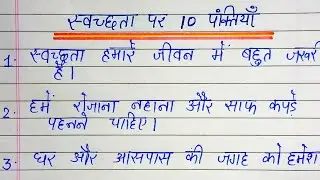 स्वच्छता पर 10 पंक्तियाँ
1. स्वच्छता हमारे जीवन में बहुत जरूरी
है।
2. हमें रोजाना नहाना और साफ कपड़े
पहनने चाहिए।
3. घर और आसपास की जगह को हमेशा